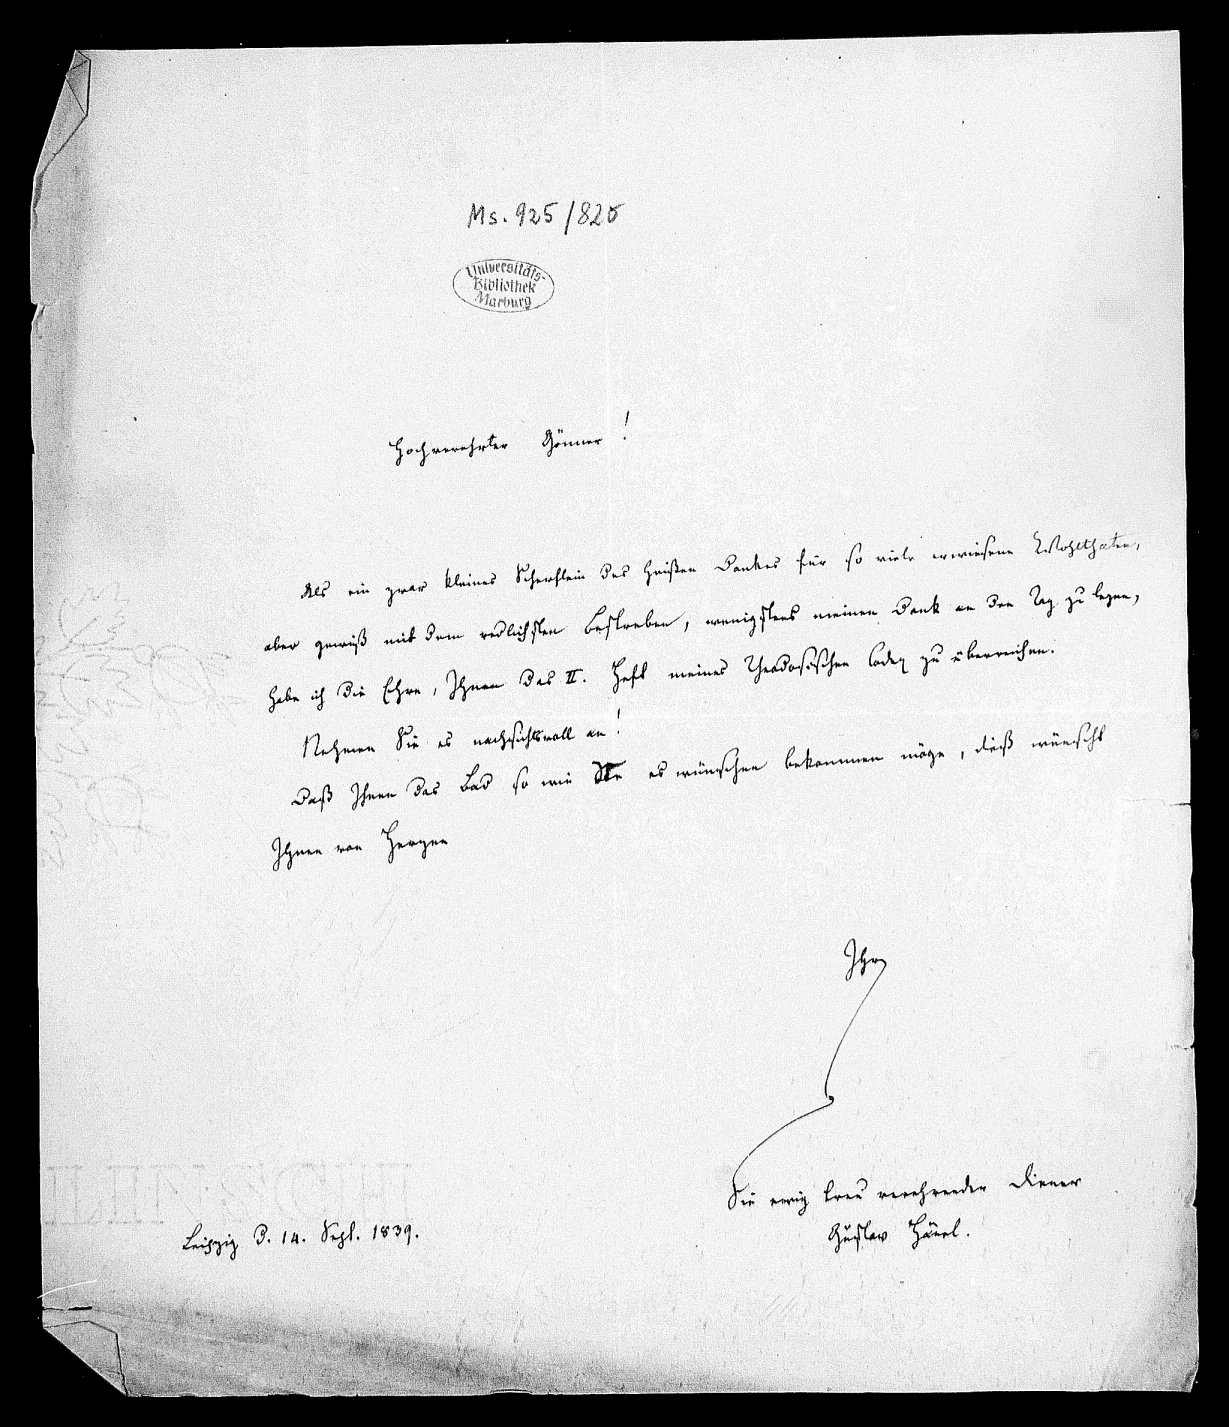 Ms. 925/820
Universitäts-
Bibliothek
Marburg
Hochverehrter Gönner!
Als ein zwar kleines Scherflein des heißen Dankes für so viele erwiesene Wohlthaten,
aber gewiß mit dem redlichsten Bestreben, wenigstens meinen Dank an den Tag zu legen,
habe ich die Ehre, Ihnen das II. Heft meines Theodosischen Codex zu überreichen.
Nehmen Sie es nachsichtsvoll an!
Daß Ihnen das Bad so wie Sie es wünschen bekommen möge, dieß wünscht
Ihnen von Herzen
Ihr
Sie ewig treu verehrender Diener
Gustav Hänel.
Leipzig d. 14. Sept. 1839.